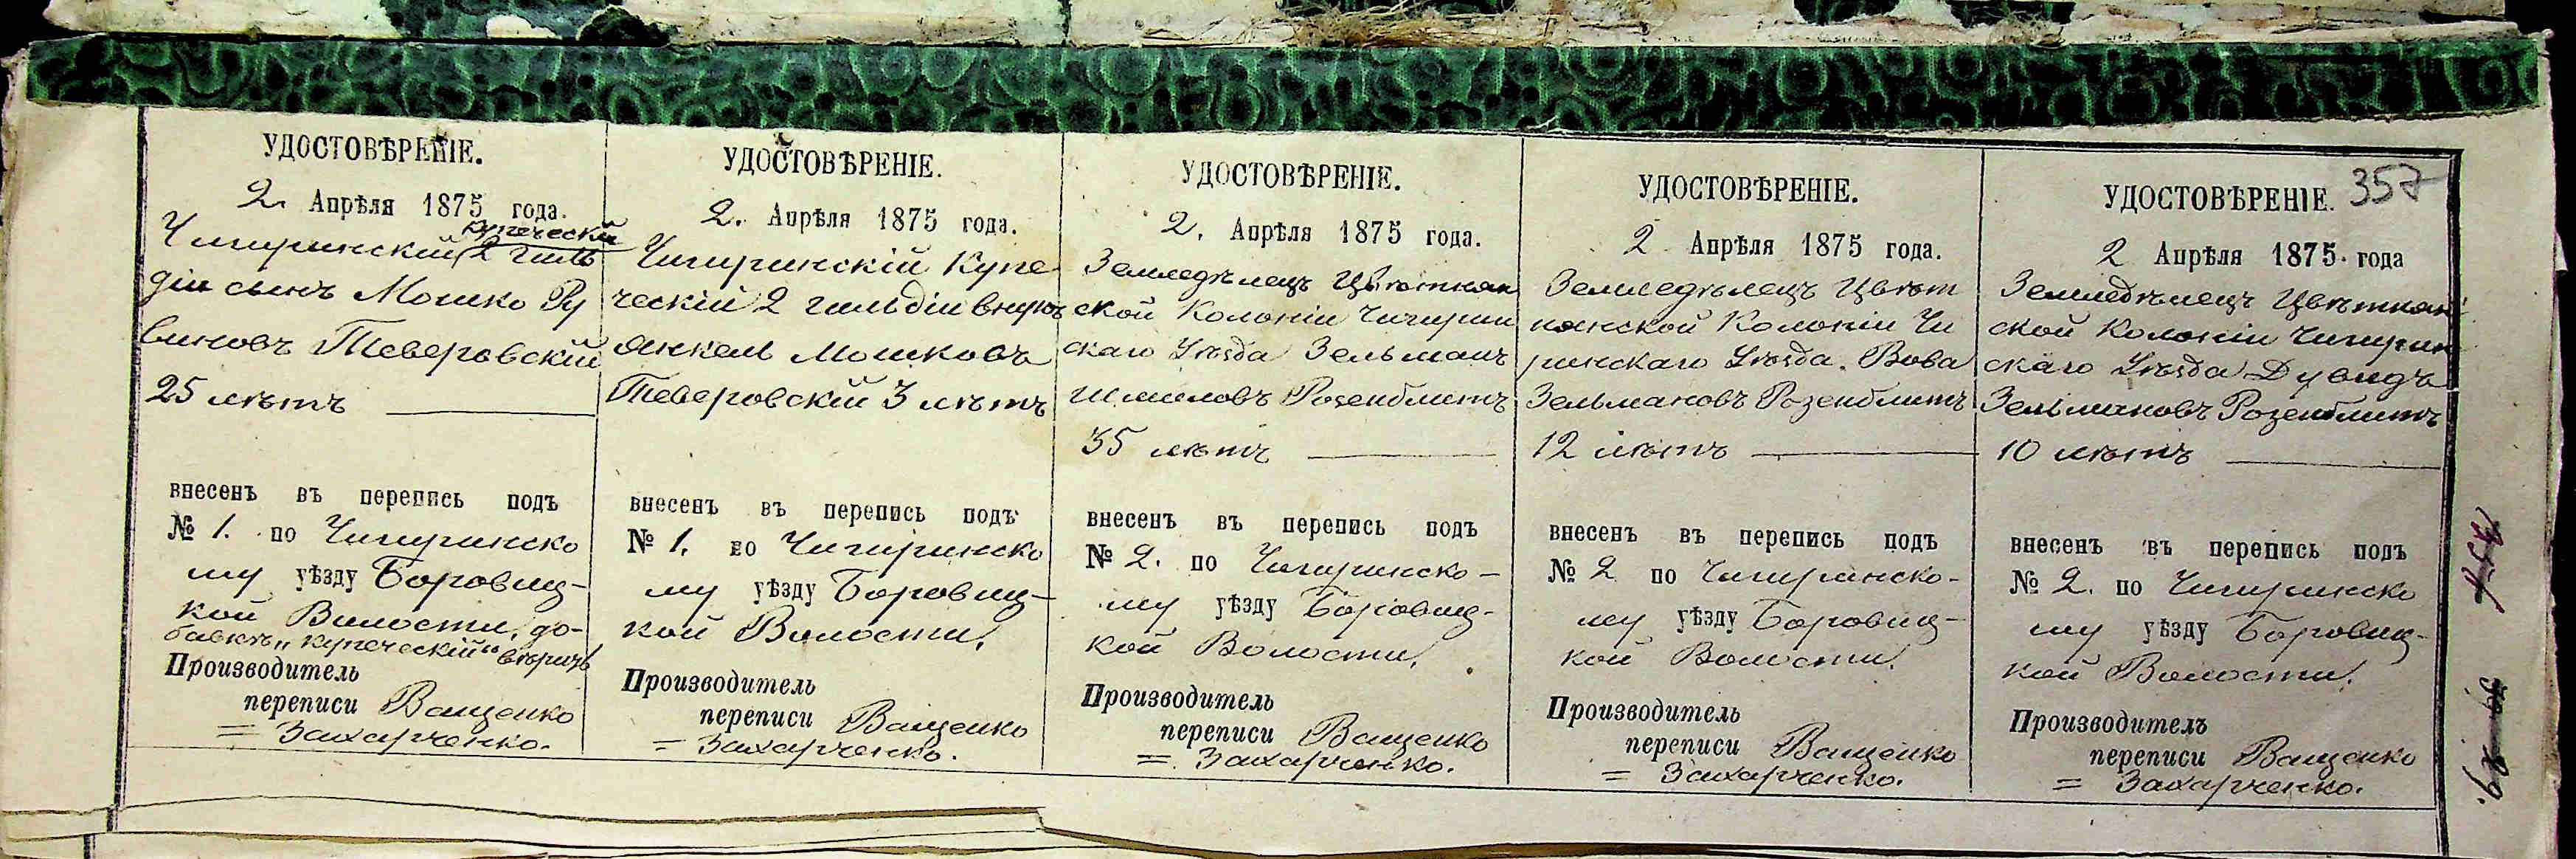 УДОСТОВѢРЕНІЕ.
2. Апрѣля 1875 года.
купеческій
Чигиринскій 2 гиль
діи сынъ Мошко Ру
виновъ Теверовскій
25 лѣтъ
внесенъ въ перепись подъ
№ 1. по Чигиринско
му уѣзду Боровиц-
кой Волости, до-
бавка „купеческій“ вѣрна
Производитель
переписи Ващенко
= Захарченко.
УДОСТОВѢРЕНІЕ.
2. Апрѣля 1875 года.
Чигиринскій Купе
ческій 2 гильдіи внукъ
Янкель Мошковъ
Теверовскій 3 лѣтъ
внесенъ въ перепись подъ
№ 1. по Чигиринско
му уѣзду Боровиц-
кой Волости,
Производитель
переписи Ващенко
= Захарченко.
УДОСТОВѢРЕНІЕ.
2. Апрѣля 1875 года.
Земледѣлецъ Цвѣтнян
ской Колоніи Чигирин
скаго Уѣзда Зельманъ
Шмиловъ Розенблитъ
35 лѣтъ
внесенъ въ перепись подъ
№ 2. по Чигиринско-
му уѣзду Боровиц-
кой Волости,
Производитель
переписи Ващенко
= Захарченко.
УДОСТОВѢРЕНІЕ.
2 Апрѣля 1875 года.
Земледѣлецъ Цвѣт
нянской Колоніи Чи
ринскаго Уѣзда. Вова
Зельмановъ Розенблитъ
12 лѣтъ
внесенъ въ перепись подъ
№ 2 по Чигиринско-
му уѣзду Боровиц-
кой Волости.
Производитель
переписи Ващенко
= Захарченко.
357
УДОСТОВѢРЕНІЕ.
2 Апрѣля 1875 года
Земледѣлецъ Цвѣтнян
ской Колоніи Чигирин
скаго Уѣзда Дувидъ
Зельмановъ Розенблитъ
10 лѣтъ
внесенъ въ перепись подъ
№ 2. по Чигиринско
му уѣзду Боровиц-
кой Волости.
Производитель
переписи Ващенко
= Захарченко.